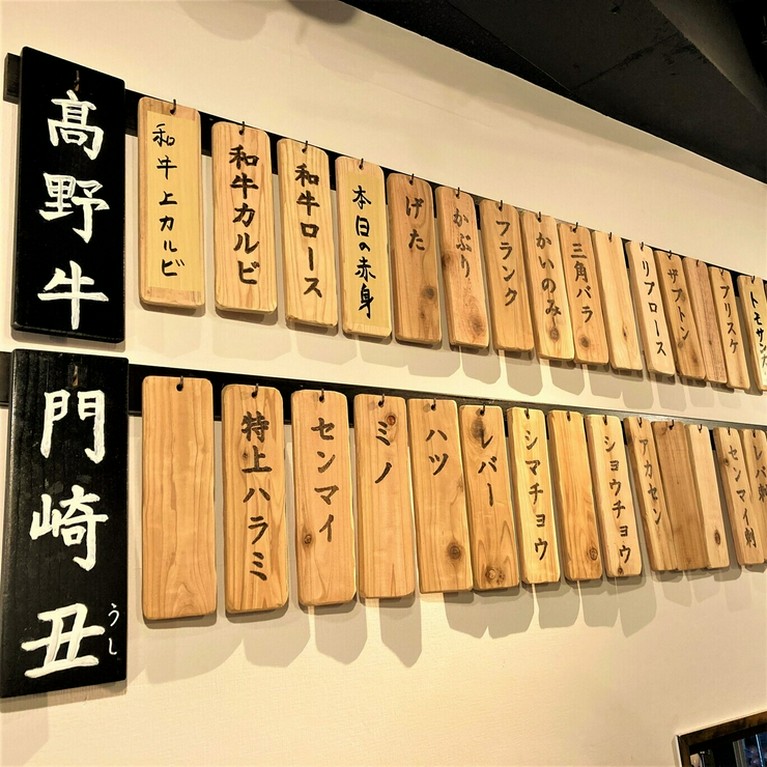 髙野牛
和牛上カルビ
和牛カルビ
和牛ロース
本日の赤身
げた
かぶり
フランク
かいのみ
三角バラ
リブロース
ザブトン
ブリスケ
トモサンカ
門崎丑
うし
特上ハラミ
センマイ
ミノ
ハツ
レバー
シマチョウ
ショウチョウ
アカセン
センマイ刺
レバ刺